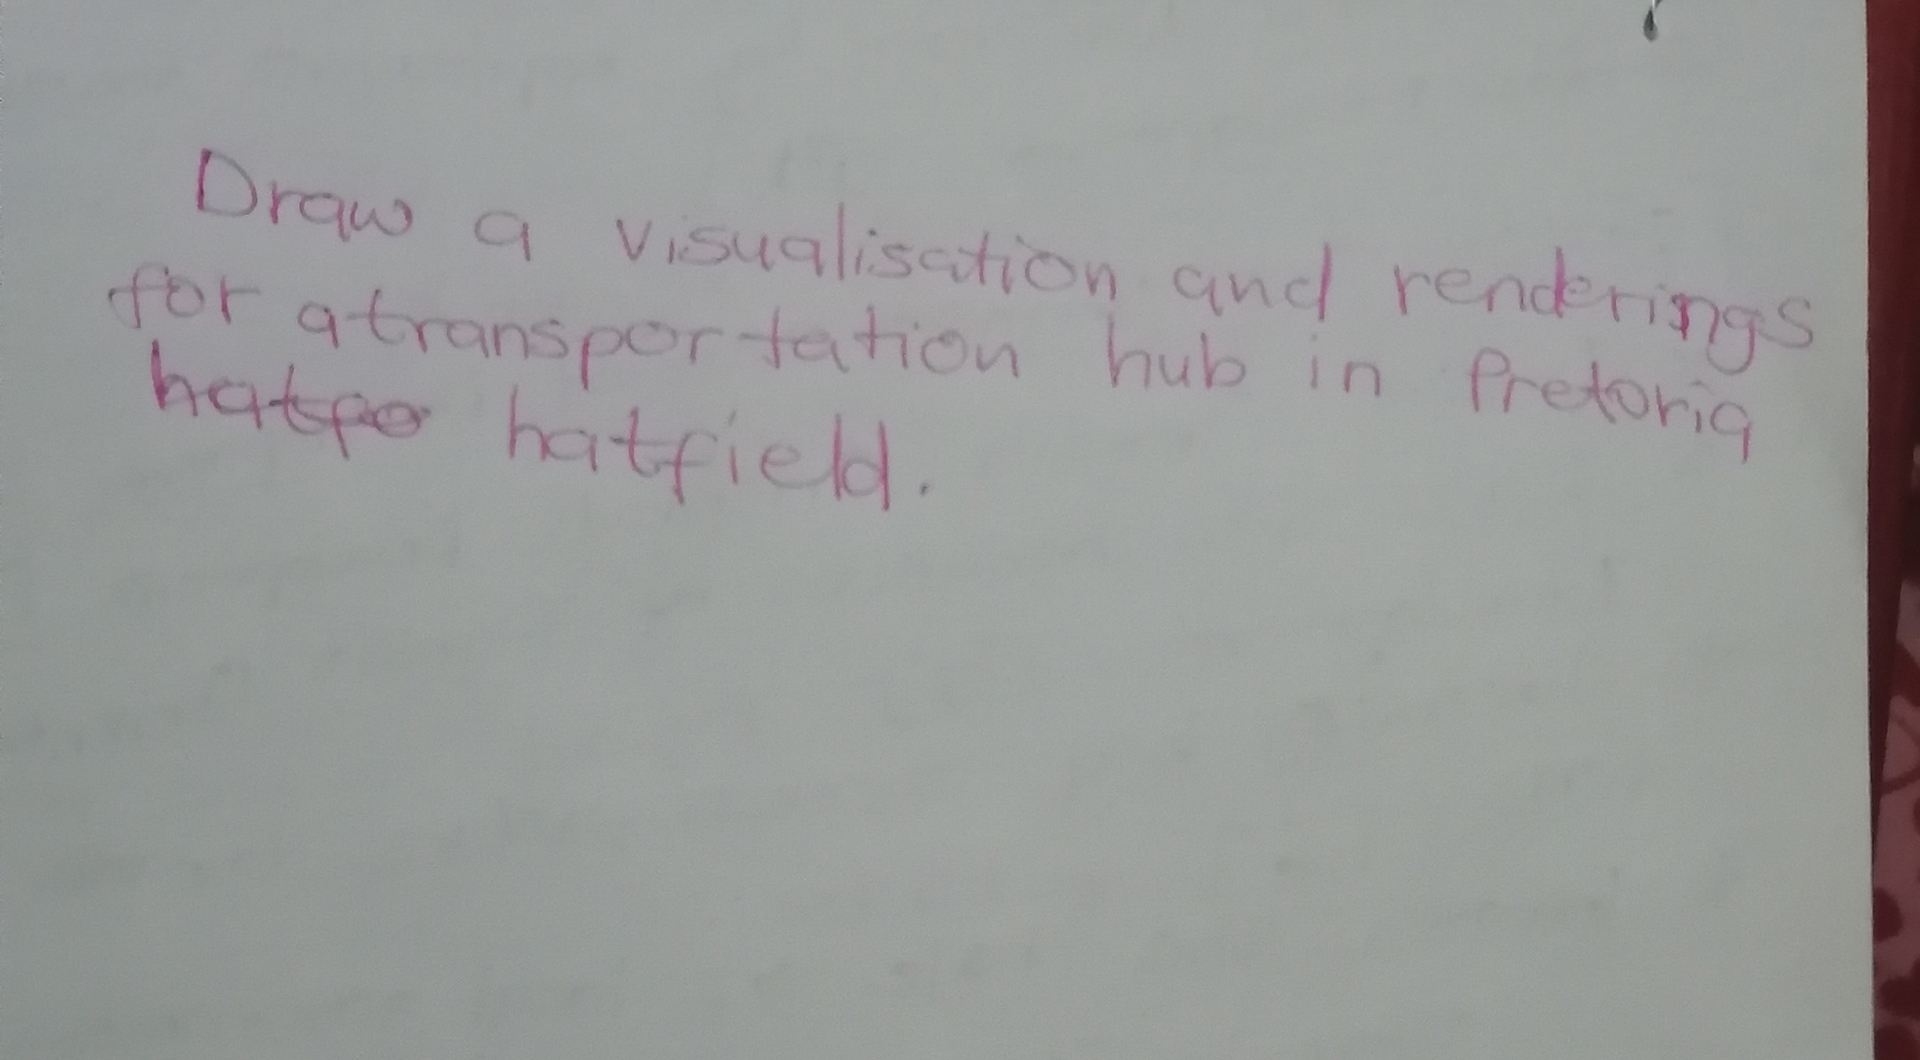 Draw a visualisation and renderings
for a transportation hub in Pretoria
hatfield.